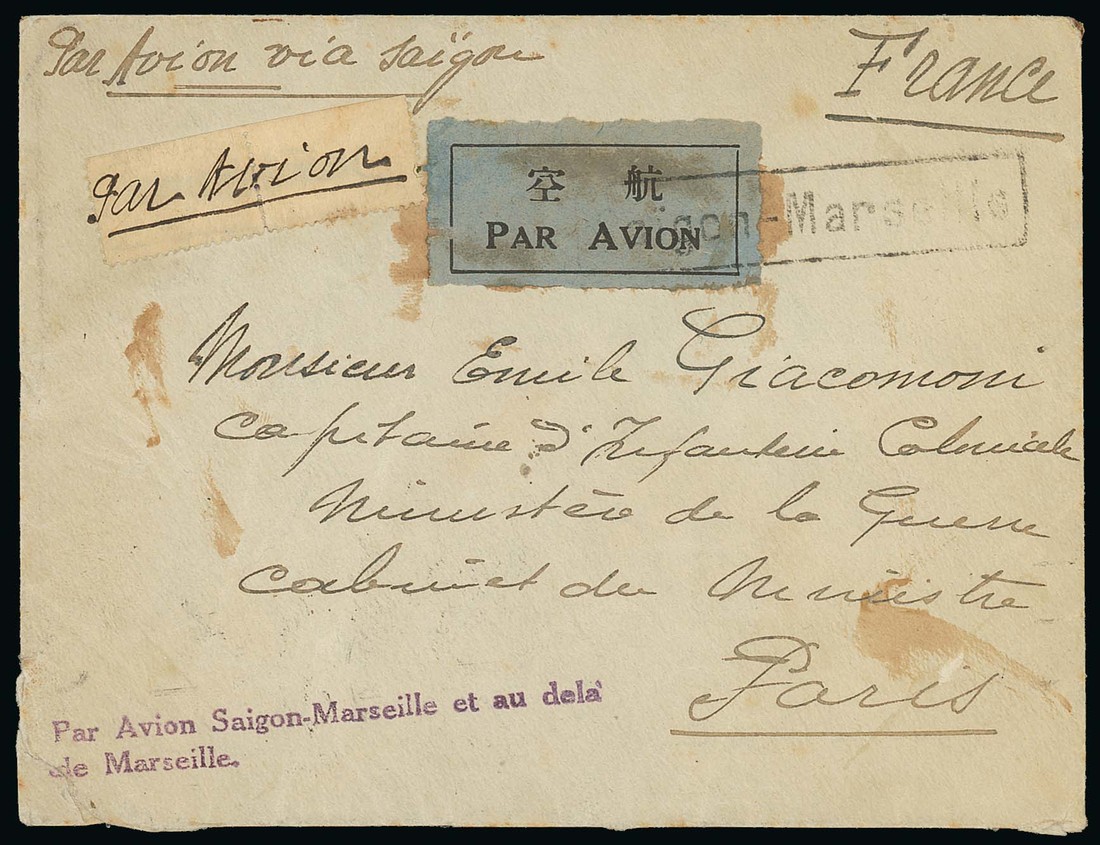 Par Avion via Saïgon
France
Par Avion
空 航
PAR AVION
Saigon-Marseille
Monsieur Emile Giacomoni
Capitaine d'Infanterie Coloniale
Ministère de la Guerre
Cabinet du Ministre
Paris
Par Avion Saigon-Marseille et au delà
de Marseille.